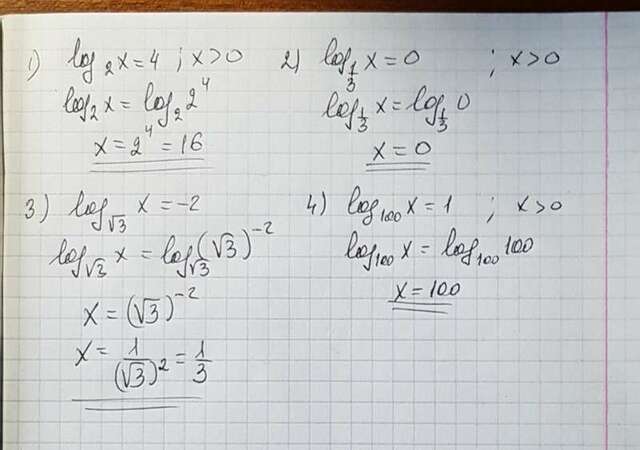 1) log₂x=4 ; x>0
log₂x = log₂2⁴
x=2⁴=16
2) log_{1/3}x=0 ; x>0
log_{1/3}x=log_{1/3}0
x=0
3) log_{√3} x=-2
log_{√3} x = log_{√3}(√3)⁻²
x=(√3)⁻²
x=1/(√3)²=1/3
4) log₁₀₀x=1 ; x>0
log₁₀₀x=log₁₀₀100
x=100